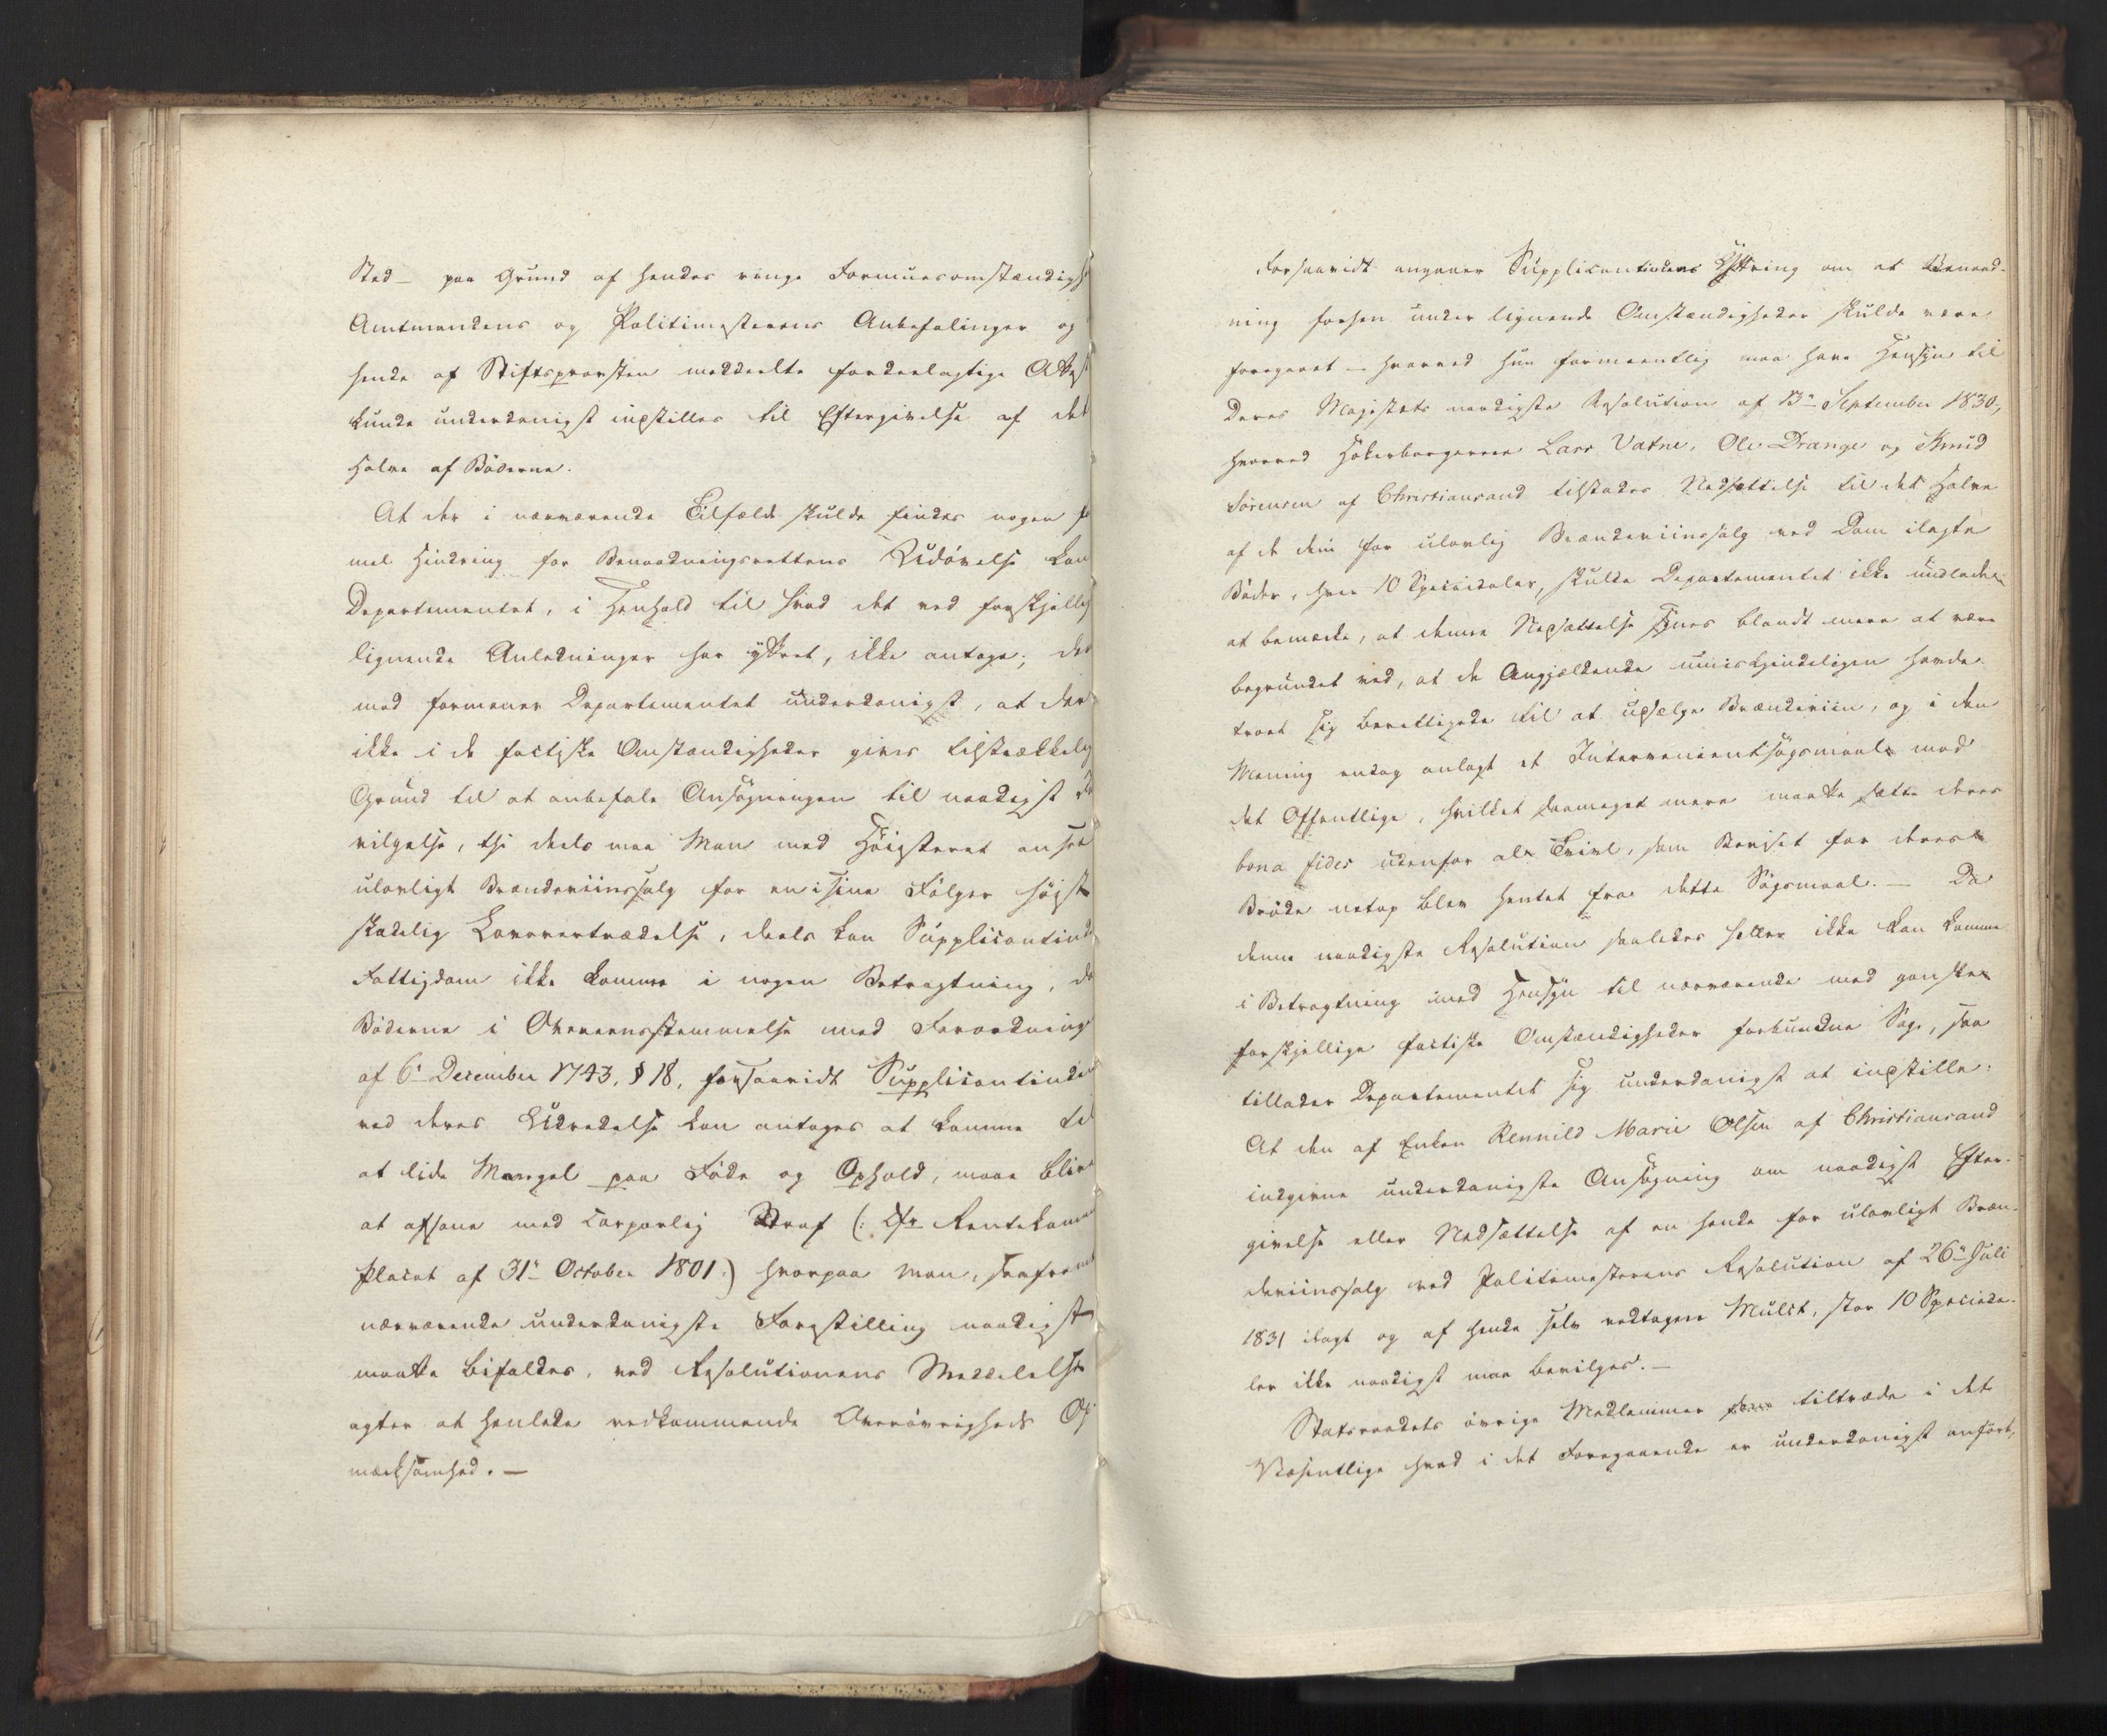 Sted – paa Grund af hendes ringe Formuesomstændigh
Amtmandens og Politimesterens Anbefalinger og
hende af Stiftsprovsten meddeelte fordeelagtige Attest
kunde underdanigst indstilles til Eftergivelse af det
Halve af Bøderne.
At der i nærværende Tilfælde skulde findes nogen fo
mel Hindring for Benaadningsrettens Udøvelse kan
Departementet, i Henhold til hvad det ved forskjellig
lignende Anledninger har yttret, ikke antage; der
mod formener Departementet underdanigst, at der
ikke i de factiske Omstændigheder gives tilstrækkelig
Grund til at anbefale Ansøgningen til naadigst
vilgelse, thi deels maa Man med Høiesteret ansee
ulovligt Brændeviinssalg for en i sine Følger høist
skadelig Lovovertrædelse, deels kan Supplicantind
Fattigdom ikke komme i nogen Betragtning, da
Bøderne i Overeensstemmelse med Forordning
af 6te December 1743, § 18, forsaavidt Supplicantinden
ved deres Udredelse kan antages at komme til
at lide Mangel paa Føde og Ophold, maae blive
at afsone med corporlig Straf (: Cfr Rentekammer
Placat af 31te October 1801 :) hvorpaa man, saafremt
nærværende underdanigste Forestilling naadigst
maatte bifaldes, ved Resolutionens Meddelelse
agter at henlede vedkommende Overøvrigheds Op
mærksomhed. –
Forsaavidt angaaer Supplicantindens Yttring om at Benaad-
ning forhen under lignende Omstændigheder skulde være
foregaaet – hvorved hun formeentlig maa have Hensyn til
Deres Majestæts naadigste Resolution af 13de September 1830,
hvorved Høkerborgerne Lars Vatne, Ole Drange og Knud
Sørensen af Christiansand tilstodes Nedsættelse til det Halve
af de dem for ulovlig Brændeviinssalg ved Dom ilagte
Bøder, hver 10 Speciedaler, skulde Departementet ikke undlade
at bemærke, at denne Nedsættelse synes blandt mere at være
begrundet ved, at de Angjældende umiskjendeligen havde
troet sig berettigede til at udsælge Brændeviin, og i den
Mening endog anlagt et Intervenientsøgsmaal mod
det Offentlige, hvilket saameget mere maatte sætte deres
bona fides udenfor al Tvivl, som Beviset for deres
Brøde netop blev hentet fra dette Søgsmaal. – Da
denne naadigste Resolution saaledes heller ikke kan komme
i Betragtning med Hensyn til nærværende med ganske
forskjellige factiske Omstændigheder forbundne Sag, saa
tillader Departementet sig underdanigst at indstille:
At den af Enken Rennild Marie Olsen af Christiansand
indgivne underdanigste Ansøgning om naadigst Efter-
givelse eller Nedsættelse af en hende for ulovligt Bræn-
deviinssalg ved Politimesterens Resolution af 26de Juli
1831 ilagt og af hende selv vedtagen Mulct, stor 10 Specieda-
ler ikke naadigst maa bevilges. –
Statsraadets øvrige Medlemmer tiltræde i det
Væsentlige hvad i det Foregaaende er underdanigst anført,